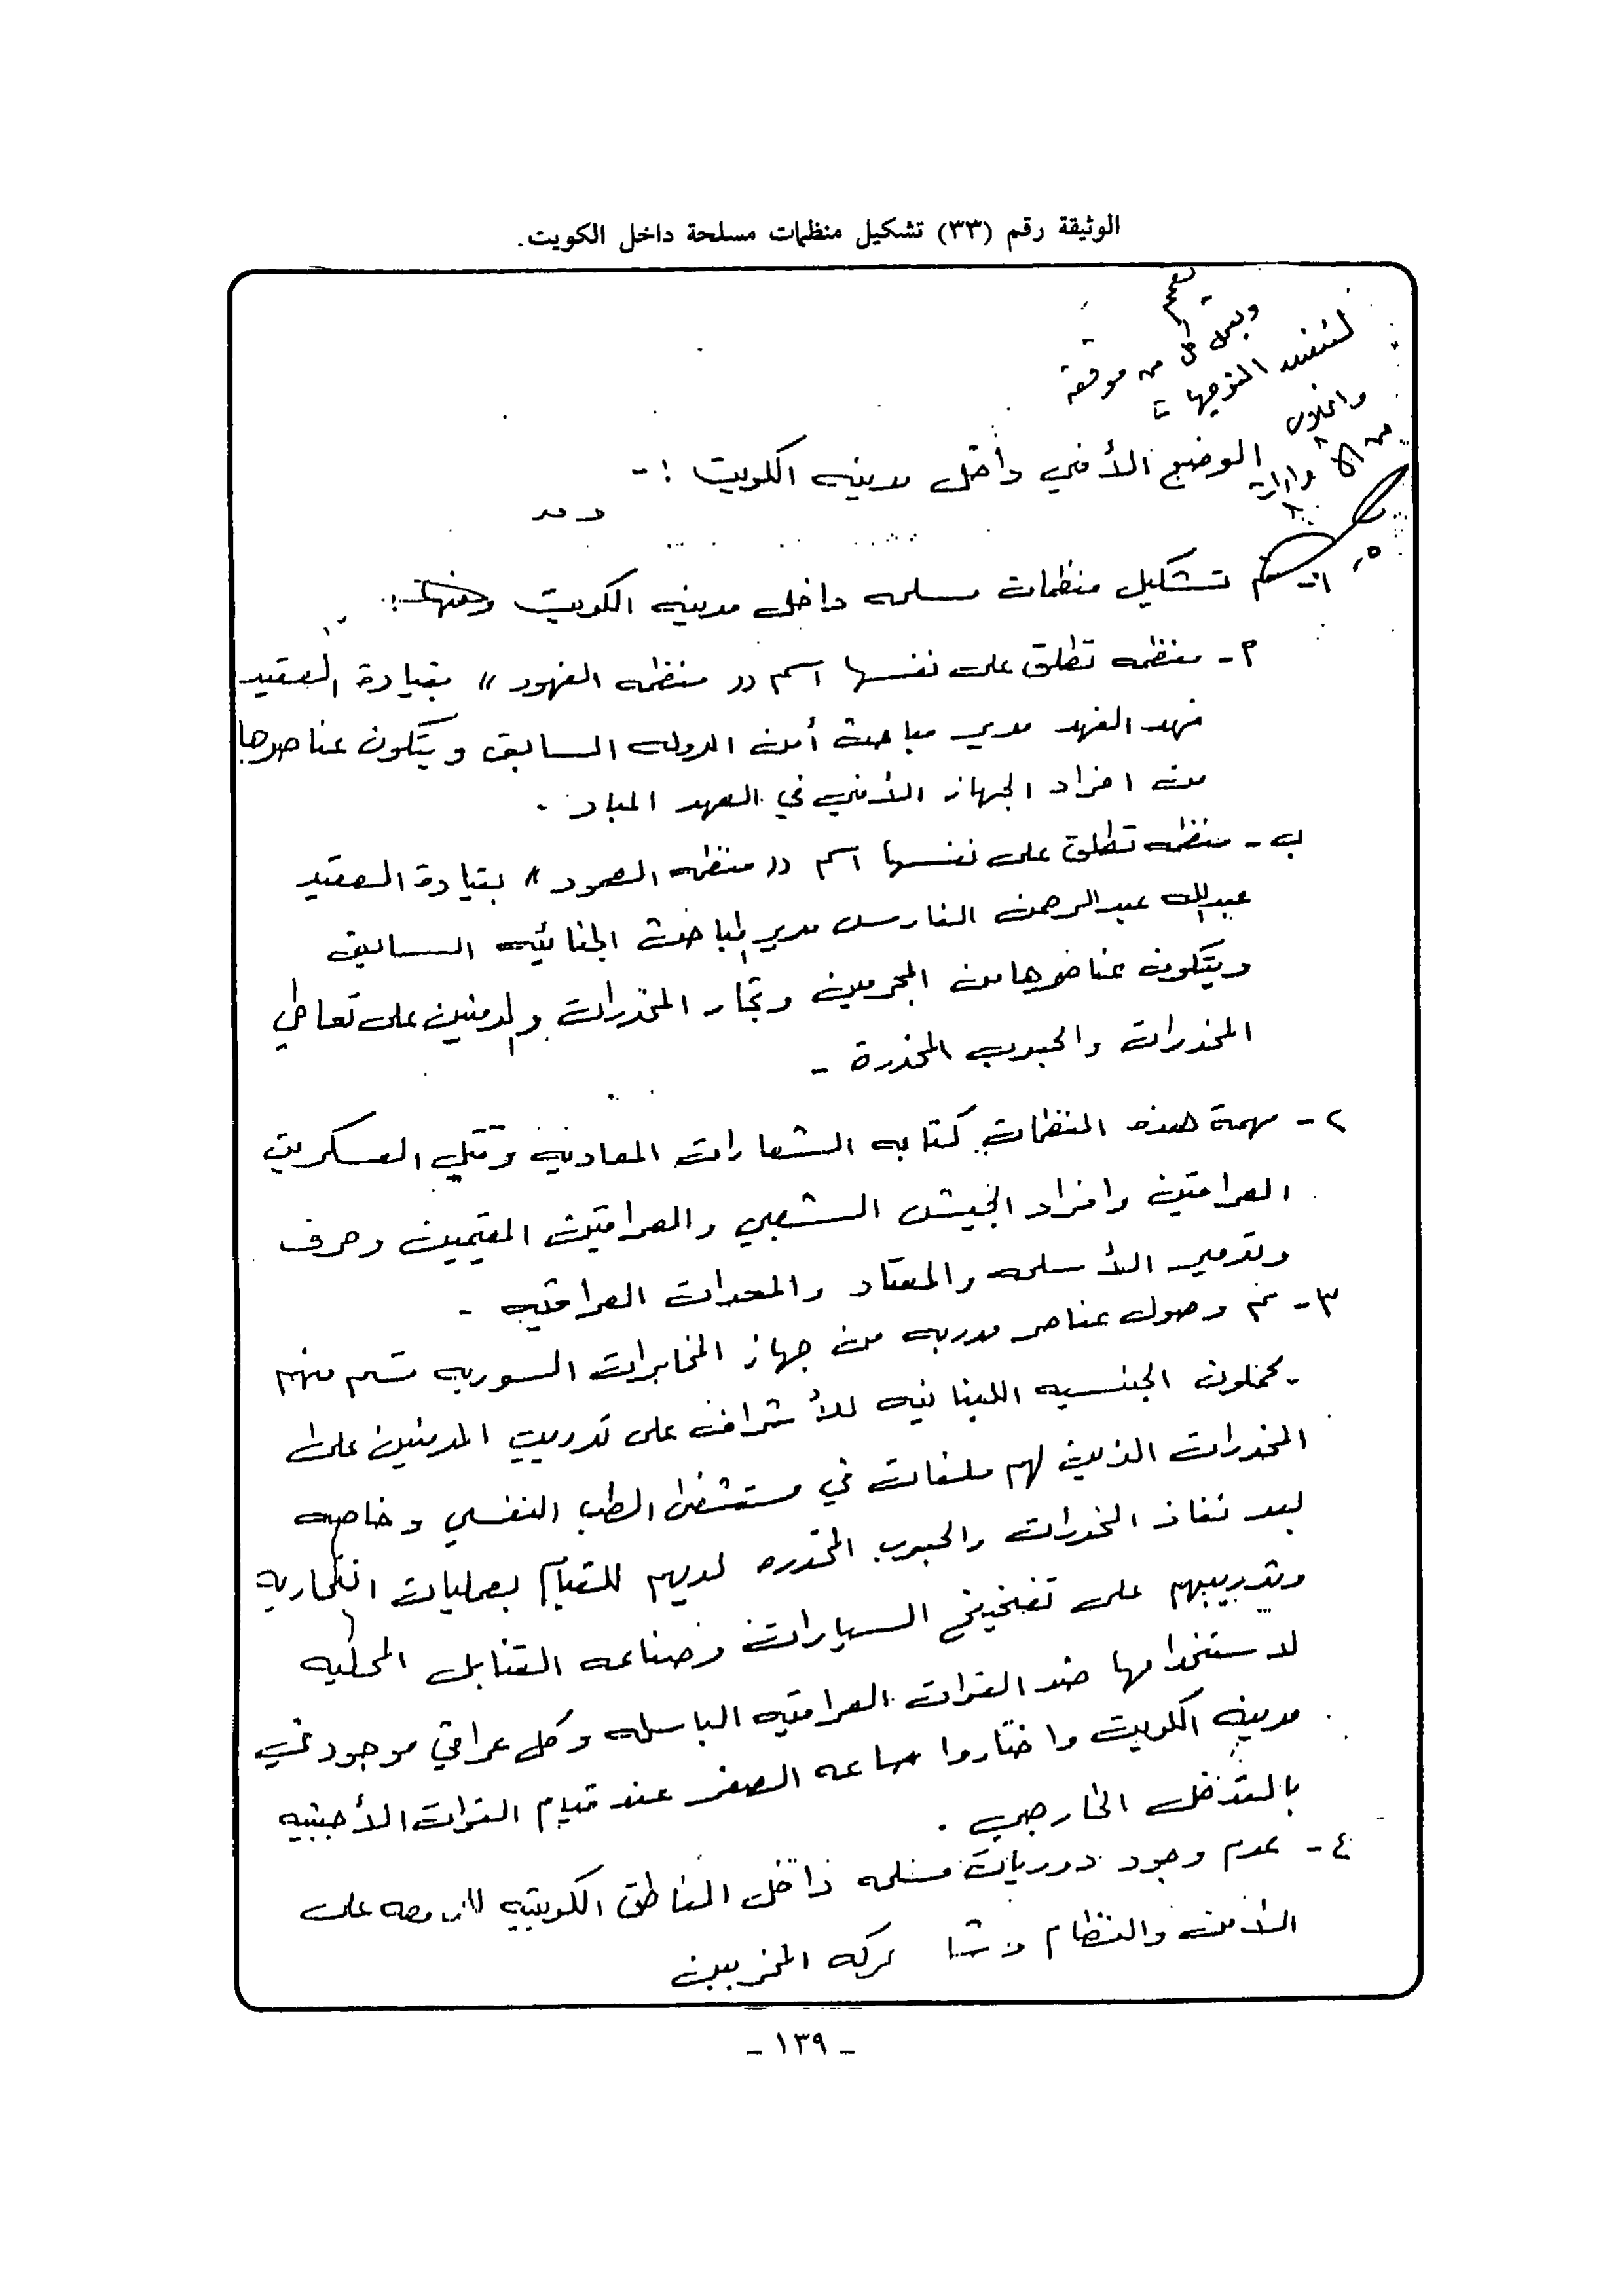 الوثيقة رقم (٣٣) تشكيل منظمات مسلحة داخل الكويت.
تعمم
ويعمل كل من موقعه
لتنفيذ التوجيهات
الوضع الأمني داخل مدينه الكويت :-
١- تم تشكيل منظمات مسلحه داخل مدينه الكويت ومنها:
أ- منظمه تطلق على نفسها اسم (( منظمه الفهود )) بقيادة العقيد
فهد الفهد مدير مباحث أمن الدوله السابق ويتكون عناصرها
من افراد الجهاز الأمني في العهد المباد .
ب- منظمه تطلق على نفسها اسم (( منظمه الصمود )) بقيادة العقيد
عبدالله عبدالرحمن الفارس مدير المباحث الجنائيه السابق
ويتكون عناصرها من المجرمين وتجار المخدرات والمدمنين على تعاطي
المخدرات والحبوب المخدرة -
٢- مهمة هذه المنظمات كتابه الشعارات المعاديه وقتل العسكريين
العراقيين وافراد الجيش الشعبي والعراقيين المقيمين وحرق
وتدمير الأسلحه والعتاد والمعدات العراقيه -
٣- تم وصول عناصر مدربه من جهاز المخابرات السوريه قسم منهم
يحملون الجنسيه اللبنانيه للأشراف على تدريب المدمنين على
المخدرات الذين لهم ملفات في مستشفى الطب النفسي وخاصه
بعد نفاذ المخدرات والحبوب المخدره لديهم للقيام بعمليات انتحاريه
وتدريبهم على تفخيخ السيارات وصناعه القنابل المحليه
لاستخدامها ضد القوات العراقيه الباسله وكل عراقي موجود في
مدينه الكويت واختاروا ساعه الصفر عند قيام القوات الأجنبيه
بالتدخل الخارجي .
٤- عدم وجود دوريات مسلحه داخل المناطق الكويتيه على
الأمن والنظام المخربين
- ١٣٩ -